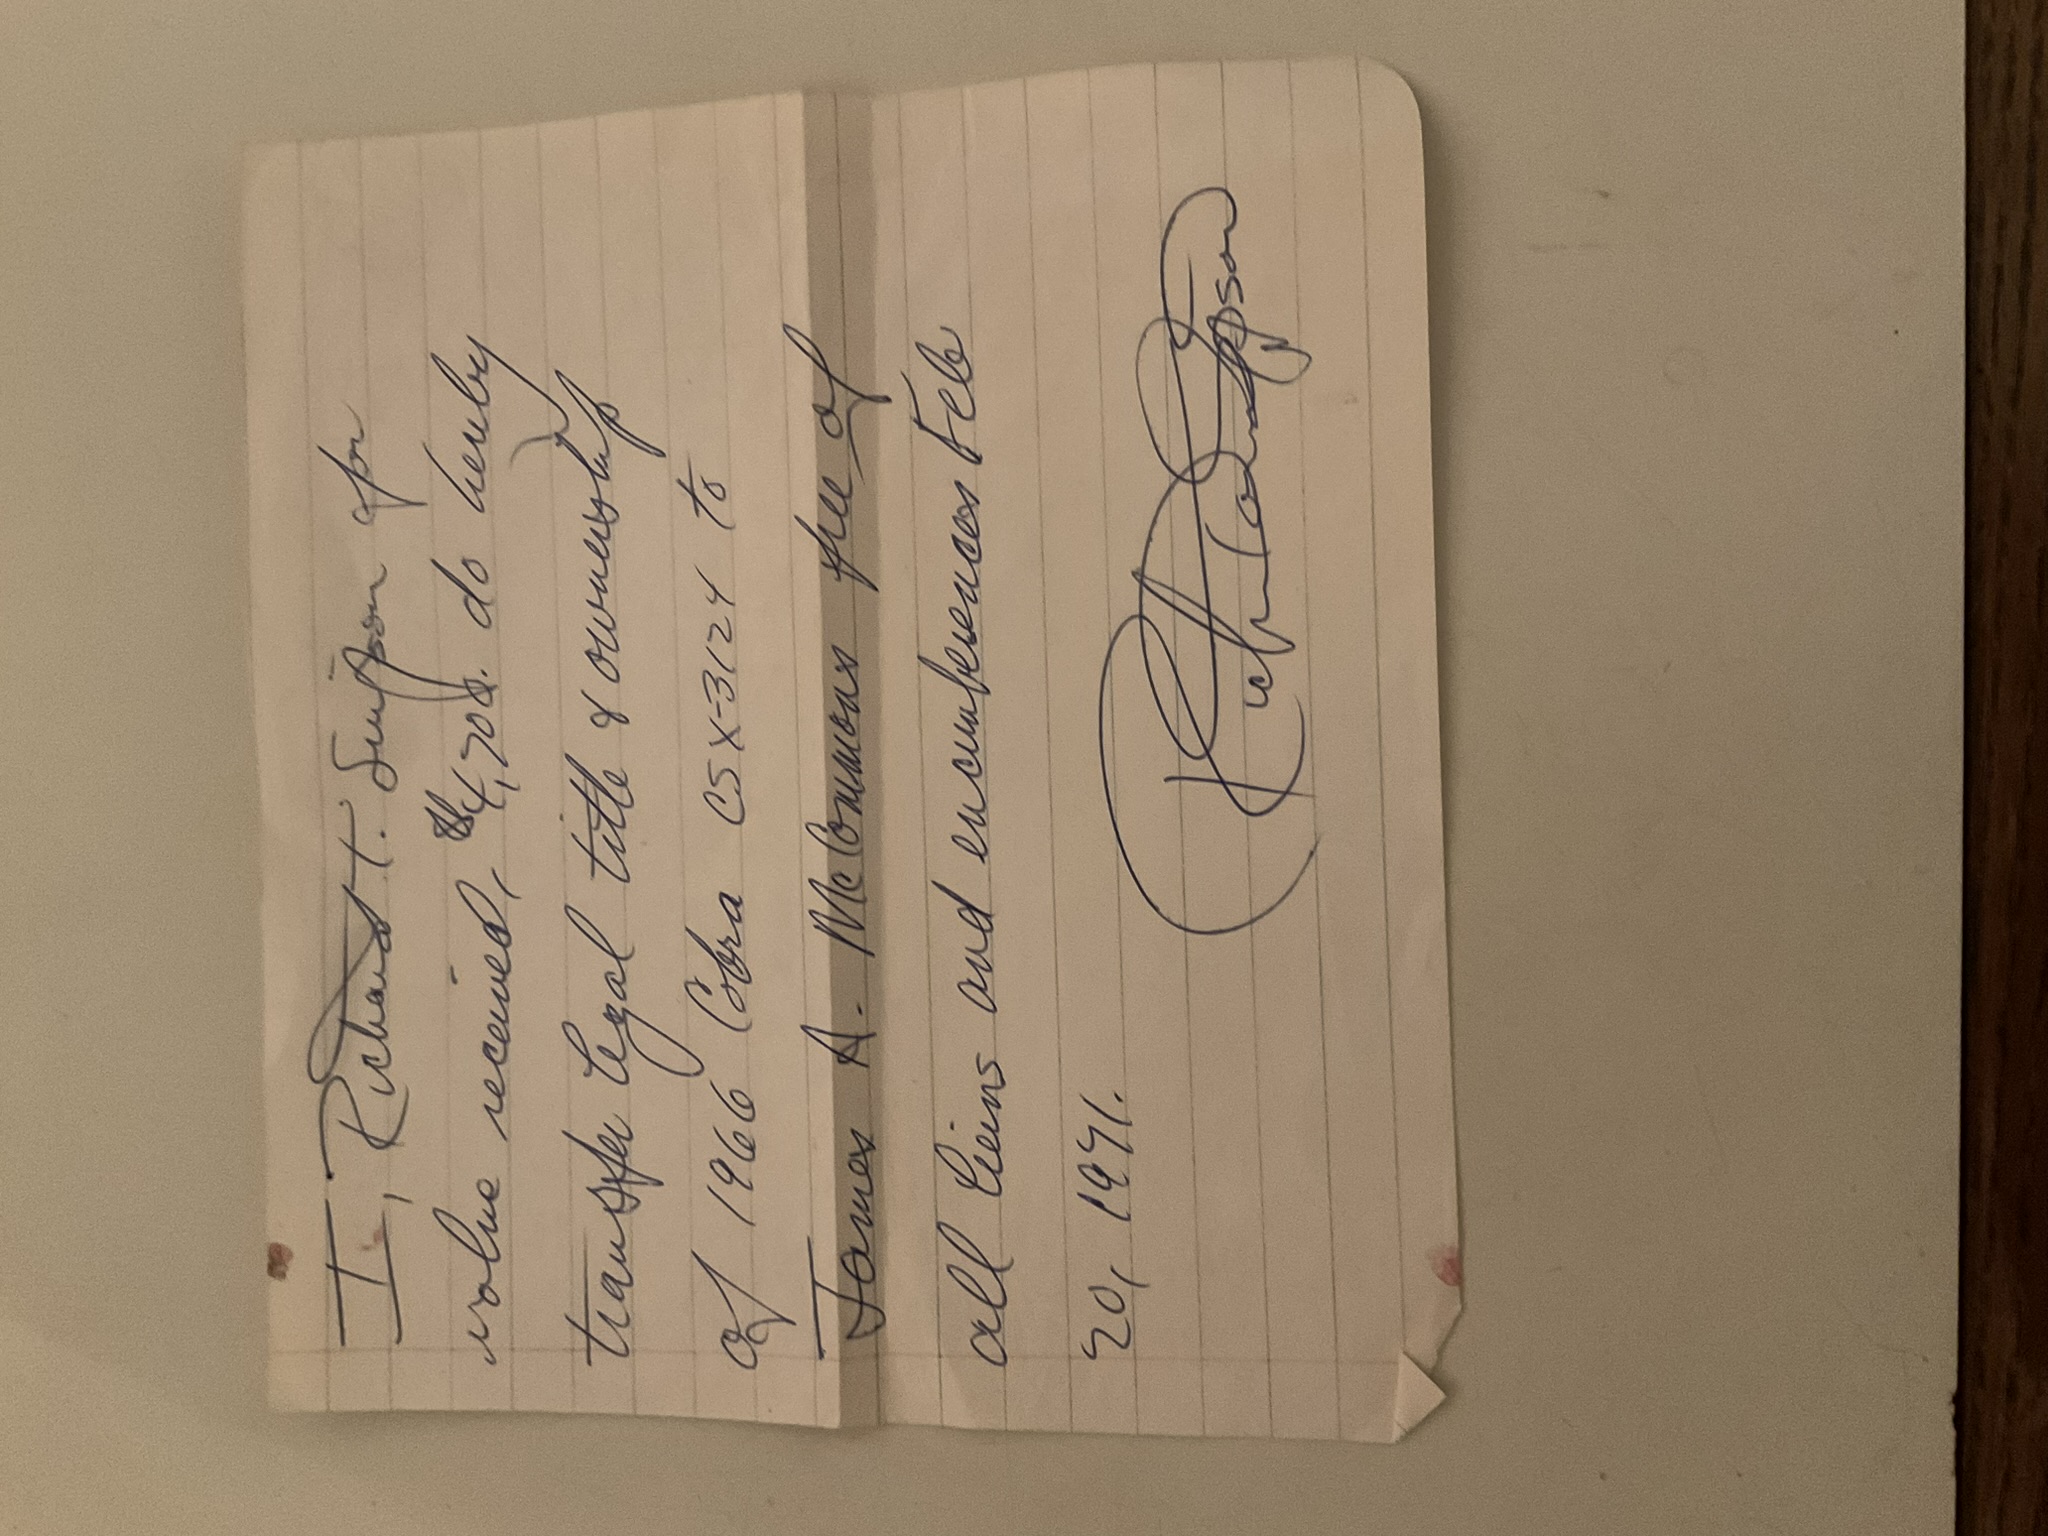 I, Richard T. Simpson for
value received, $4,700. do hereby
transfer legal title & ownership
of 1966 Cobra CSX-3124 to
James A. McCommons free of
all liens and encumberences Feb
20, 1971.
Richard Simpson